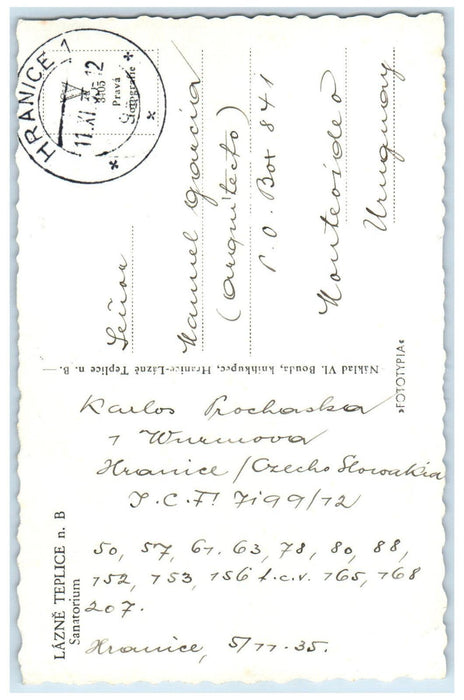 LÁZNĚ TEPLICE n. B
Sanatorium
Karlos Prochaska
1 Wurmova
Hranice / Czecho Slowakia
I.C.F. 7199/12
50, 57, 61. 63, 78, 80, 88,
152, 153, 156 t.c.v. 165, 168
207.
Hranice, 5/11-35.
Náklad Vl. Bouda, knihkupec, Hranice-Lázně Teplice n. B.
»FOTOTYPIA«
HRANICE 1
11.XI. 12
Pravá
fotografie
Señor
Manuel Garcia
(arquitecto)
P.O. Box 841
Montevideo
Uruguay